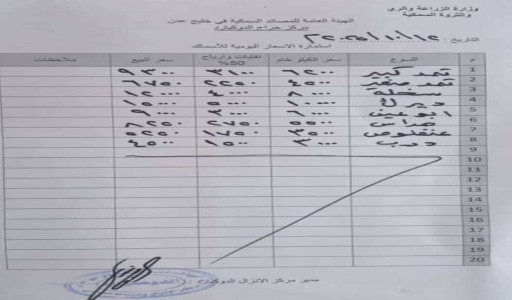 وزارة الزراعة والري
والثروة السمكية
الهيئة العامة للمصائد السمكية في خليج عدن
مركز حراج الدوكيارد
التاريخ :
استمارة الاسعار اليومية للأسماك
م النوع سعر الكيلو خام نفليات وارباح 50% سعر البيع ملاحظات
1 ثمد كبير ٦٢٠٠ ٣١٠٠ ٩٣٠٠
2 ثمد صغير ٤٥٠٠ ٢٢٥٠ ٦٧٥٠
3 سخلة ٨٠٠٠ ٤٠٠٠ ١٢٠٠٠
4 ديرك ١٠٠٠٠ ٥٠٠٠ ١٥٠٠٠
5 ابو عين ٦٠٠٠ ٣٠٠٠ ٩٠٠٠
6 ٥٥٠٠ ٢٧٥٠ ٨٢٥٠
7 عنفلوص ٣٥٠٠ ١٧٥٠ ٥٢٥٠
8 درب ٣٠٠٠ ١٥٠٠ ٤٥٠٠
9
10
11
12
13
14
15
16
17
18
19
20
مدير مركز الانزال الدوكيارد :